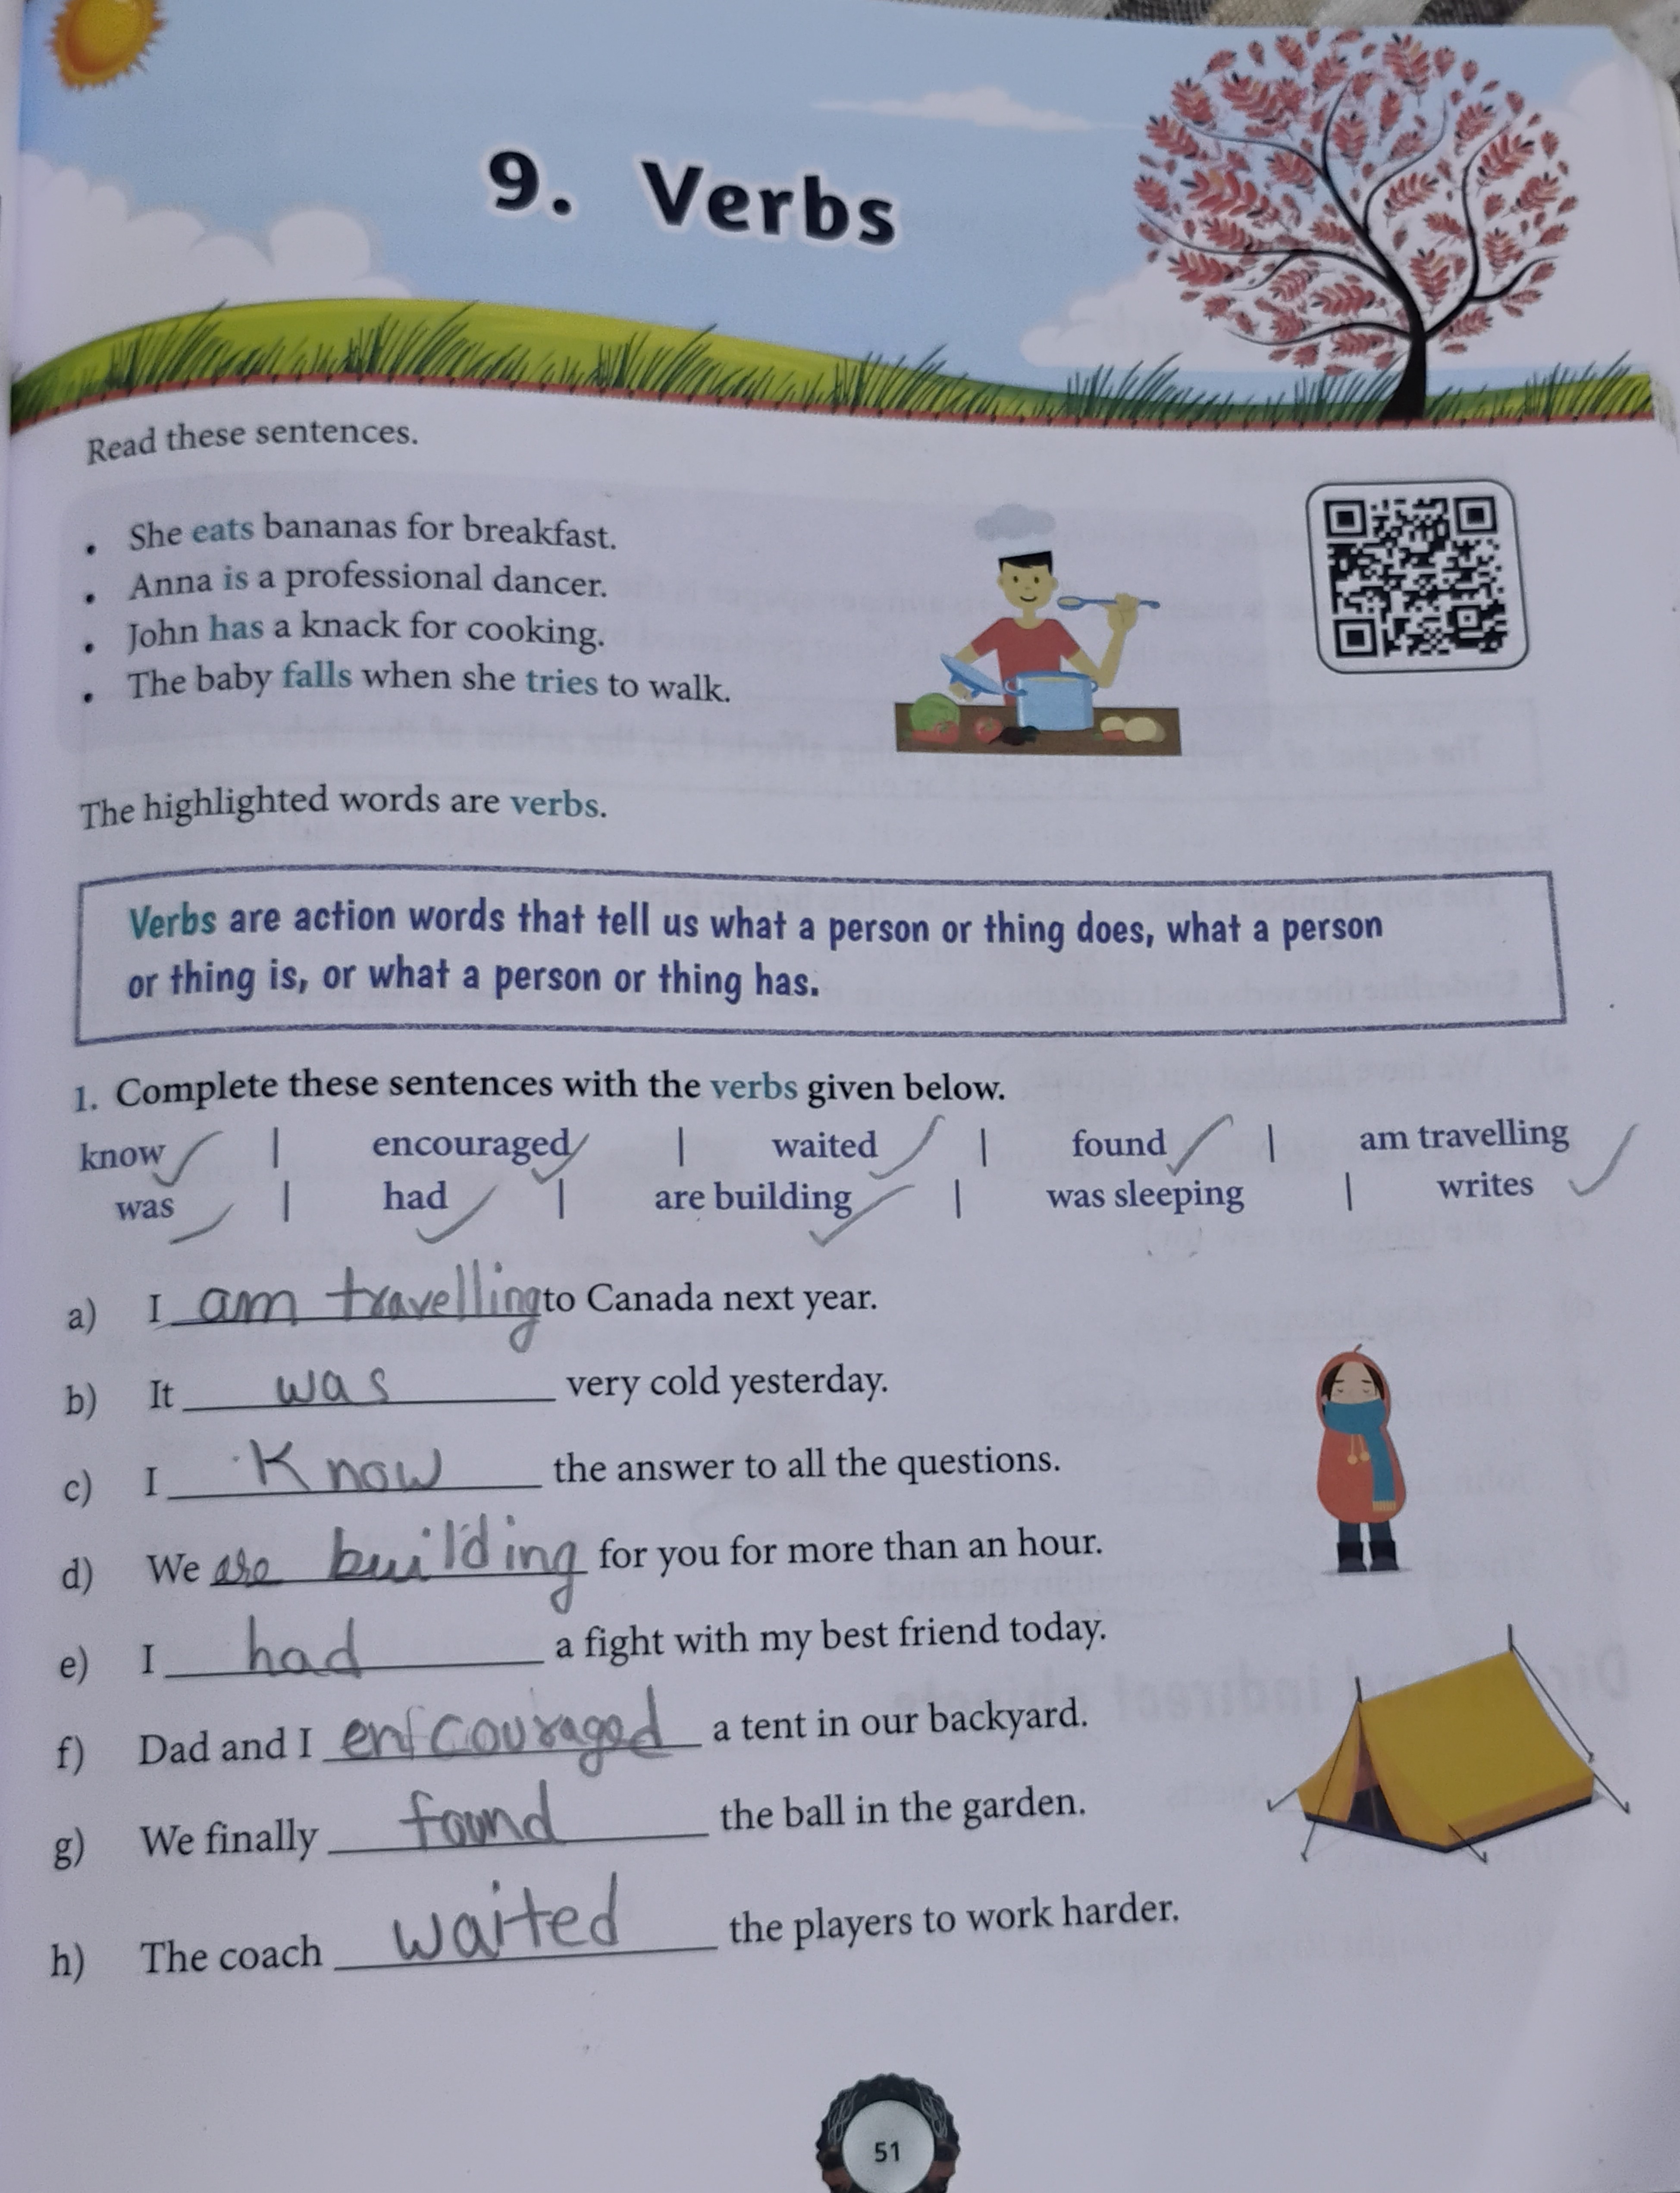 9. Verbs
Read these sentences.
• She eats bananas for breakfast.
• Anna is a professional dancer.
• John has a knack for cooking.
• The baby falls when she tries to walk.
The highlighted words are verbs.
Verbs are action words that tell us what a person or thing does, what a person
or thing is, or what a person or thing has.
1. Complete these sentences with the verbs given below.
know | encouraged | waited | found | am travelling
was | had | are building | was sleeping | writes
a) I am travelling to Canada next year.
b) It was very cold yesterday.
c) I Know the answer to all the questions.
d) We are building for you for more than an hour.
e) I had a fight with my best friend today.
f) Dad and I encouraged a tent in our backyard.
g) We finally found the ball in the garden.
h) The coach waited the players to work harder.
51